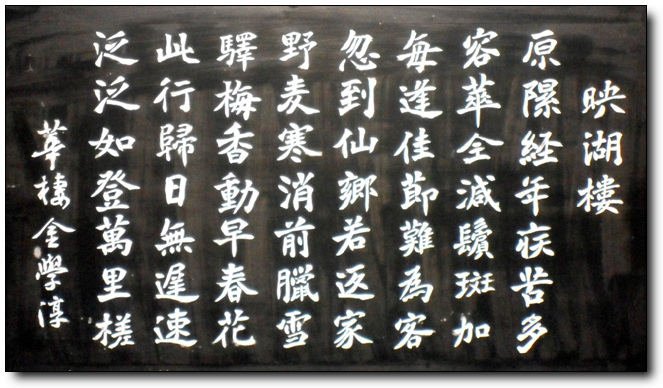 映湖樓
原隰経年疾苦多
容華全減鬢斑加
每逢佳節難為客
忽到仙鄉若返家
野麦寒消前臘雪
驛梅香動早春花
此行歸日無遲速
泛泛如登萬里槎
華棲金學淳